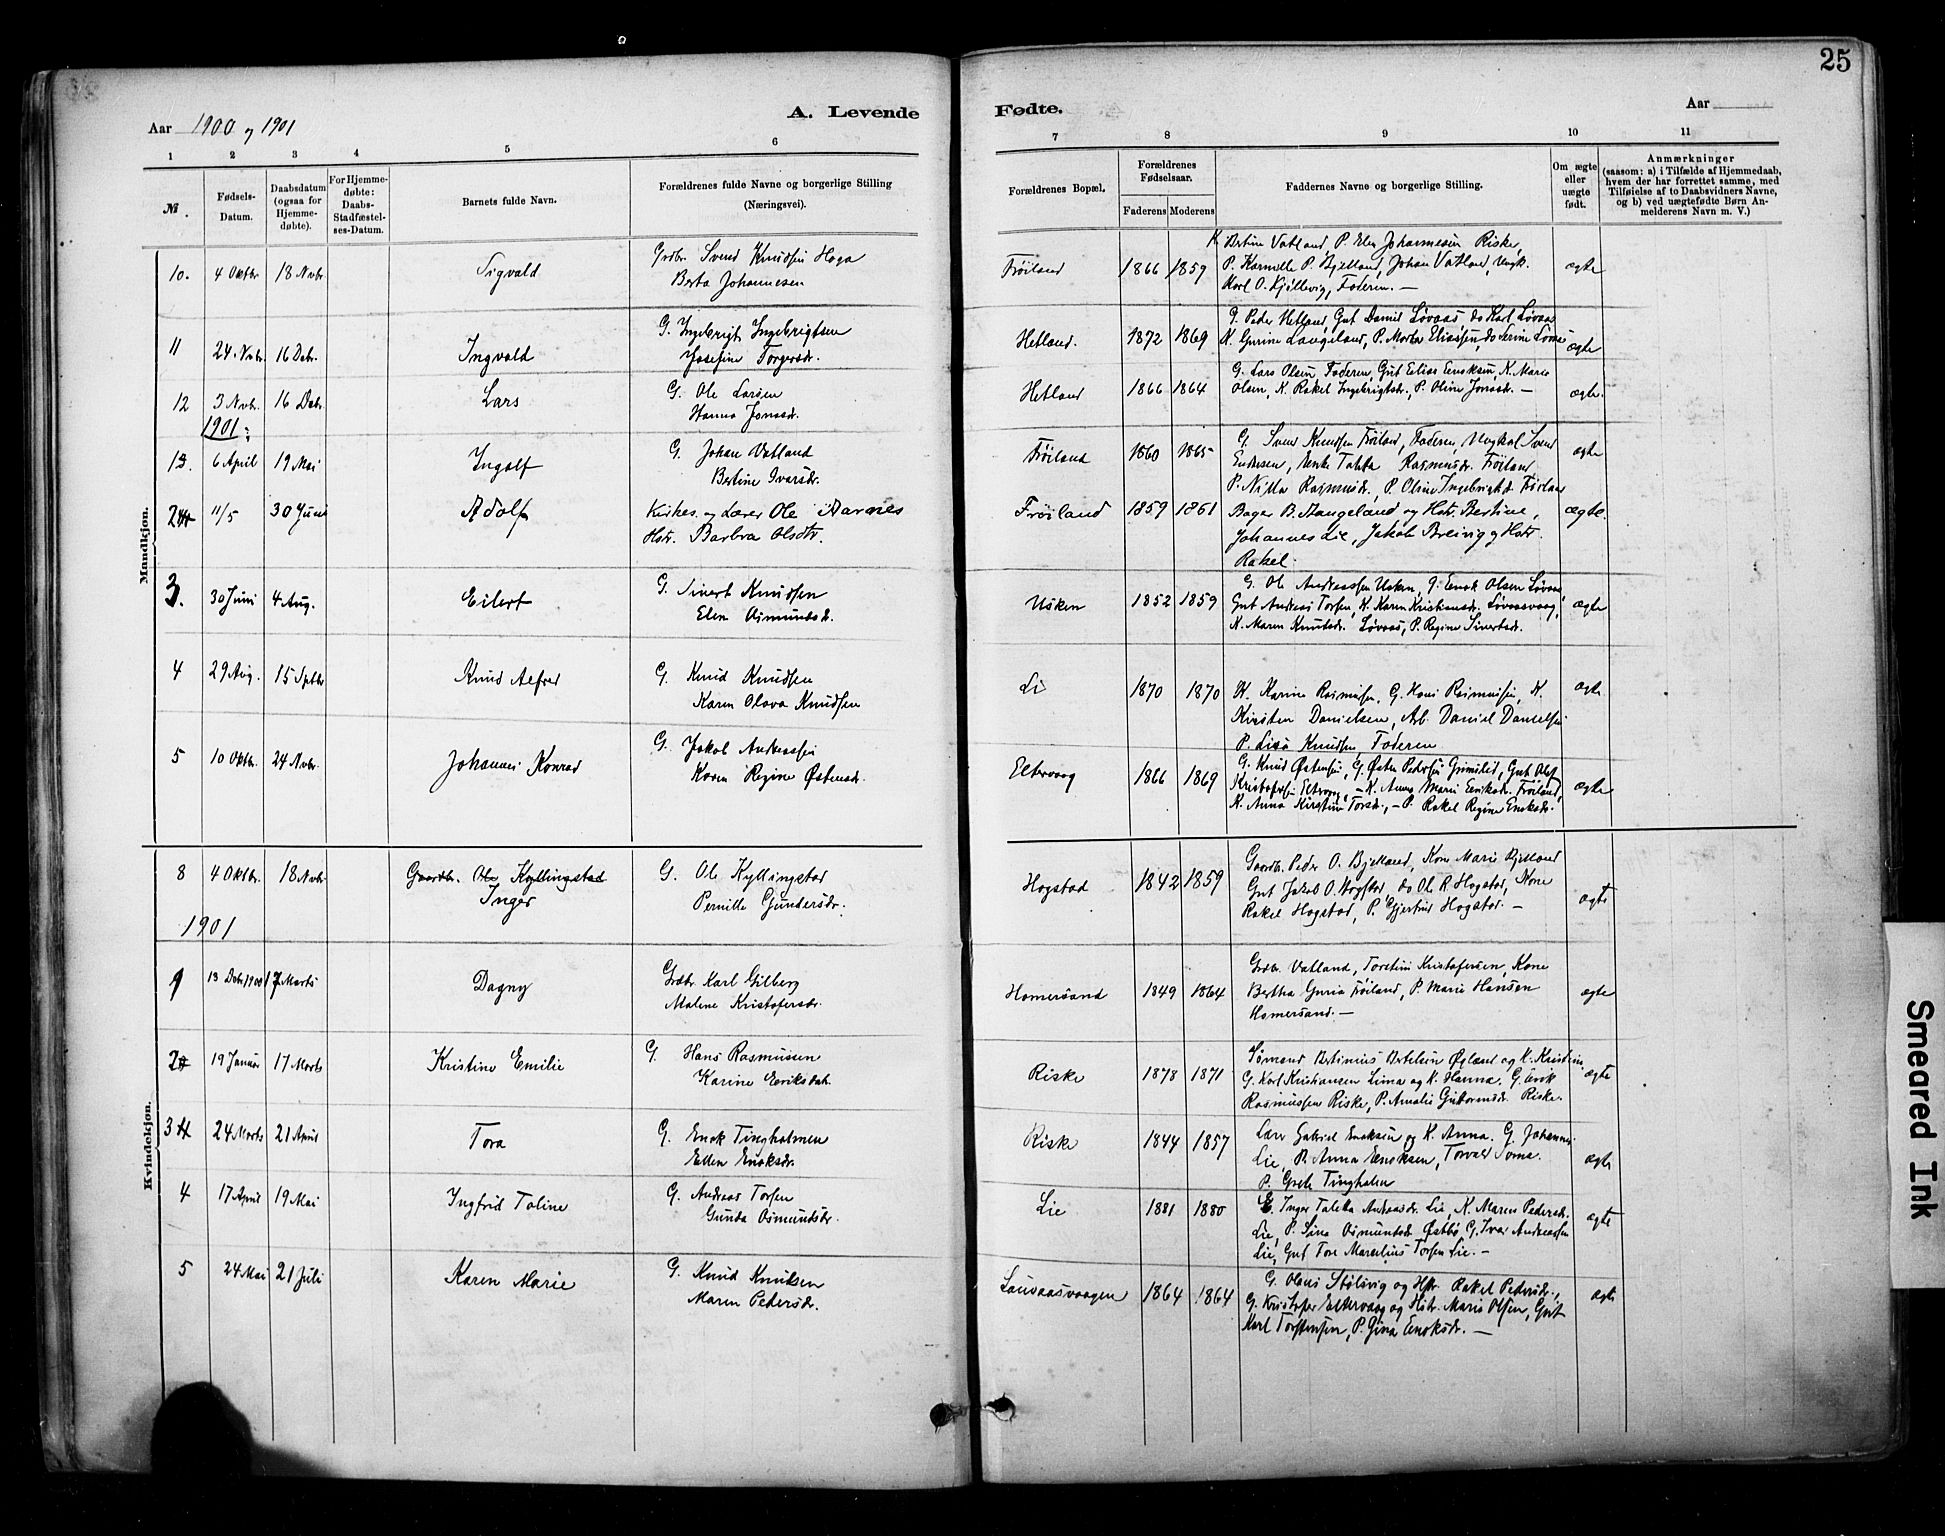 25
Aar 1900 og 1901
A. Levende Fødte.
Aar
1 2 3 4 5 6 7 8 9 10 11
№.
Fødsels-Datum.
Daabsdatum (ogsaa for Hjemme-døbte).
For Hjemme-døbte: Daabs-Stadfæstel-ses-Datum.
Barnets fulde Navn.
Forældrenes fulde Navne og borgerlige Stilling (Næringsvei).
Forældrenes Bopæl.
Forældrenes Fødselsaar.
Faderens Moderens
Faddernes Navne og borgerlige Stilling.
Om ægte eller uægte født.
Anmærkninger (saasom: a) i Tilfælde af Hjemmedaab, hvem der har forrettet samme, med Tilføielse af to Daabsvidners Navne, og b) ved uægtefødte Børn An-melderens Navn m. V.)
Mandkjøn.
10. 4 Oktbr 18 Nvbr Sigvald
Grdbr. Svend Knudsen Haga
Berta Johannesen
Frøiland 1866 1859
K Bertine Vatland P. Elen Johannesen Riske,
P. Kornelle P. Bjelland, Johan Vatland, Ungk.
Karl O. Kjøllevig, Faderen. —
ægte
11 24. Nvbr 16 Debr. Ingvald
G. Ingebrigt Ingebrigtsen
Josefine Torgersdr.
Hetland. 1872 1869
G. Peder Hetland, Gut Daniel Løvaas do Karl Løvaas
K. Gurine Langeland, P. Marta Eliassen, do Serine
ægte
12 3 Nvbr. 16 Debr. Lars
G. Ole Larsen
Hanna Jonasdr.
Hetland 1866 1864
G. Lars Olsen Faderen, Gut Elias Enoksen, K. Marie
Olsen, K. Rakel Ingebrigtsdr., P. Oline Jonasdr. —
ægte.
1901:
13. 6 April 19 Mai Ingolf
G. Johan Vatland
Bertine Ivarsdr.
Frøiland 1860 1865
G. Svend Knudsen Frøiland, Faderen, Ungkal Svend
Endresen, Enke Talette Rasmusdr. Frøiland
P. Nilla Rasmusdr., P. Oline Ingebrigtsdr. Frøiland
ægte
2 11/5 30 Juni Adolf
Kirkes. og Lærer Ole Aarnes
Hstr. Barbra Olsdtr.
Frøiland 1859 1861
Bager B. Stangeland og Hstr. Bertine,
Johannes Lie, Jakob Breivig og Hstr.
Rakel.
ægte.
3. 30 Juni 4 Aug. Eilert
G. Sivert Knudsen
Elen Osmundsdr.
Usken 1852 1859
G. Ole Andreassen Usken, G. Enok Olsen Løvaas,
Gut Andreas Torsen, K. Karen Kristiansdr. Løvaasvaag,
K. Maren Knutsdr. Løvaas, P. Regine Sivertsdr.
ægte
4 29 Aug. 15 Septbr Knud Alfred
G. Knud Knudsen
Karen Olava Knudsen
Li 1870 1870
K. Karine Rasmusen, G. Hans Rasmussen, K.
Kirsten Danielsen, Arb. Daniel Danielsen
P. Lisa Knudsen, Faderen
ægte
5 10 Oktbr. 24 Nvbr. Johannes Konrad
G. Jakob Andreassen
Karen Regine Østensdr.
Eltervaag 1866 1869
G. Knud Østensen, G. Østen Pedersen Grimilid, Gut Olaf
Kristofersen Eltervaag, — K. Anna Marie Eriksdr. Frøiland,
K. Anna Kirstine Torsdr., — P. Rakel Regine Enoksdr.
ægte
Kvindekjøn.
8 4 Oktbr. 18 Nvbr Gaardbr. Ole Kyllingstad
Inger
G. Ole Kyllingstad
Pernille Gundersdr.
Hogstad 1842 1859
Gaardb. Peder O. Bjelland, Kone Marie Bjelland
Gut Jakob O. Hogstad, do Ole R. Hogstad, Kone
Rakel Hogstad, P. Gjertrud Hogstad. —
ægte
1901
1 13 Debr 1900 17 Marts Dagny
Grdbr. Karl Gilberg
Malene Kristofersdr.
Homersand 1849 1864
Grdb. Vatland, Torstein Kristofersen, Kone
Bertha Guria Frøiland, P. Marie Hansen
Homersand. —
ægte
2 19 Januar 17 Marts Kristine Emilie
G. Hans Rasmussen
Karine Eeriksdatr.
Riske 1878 1871
Sømand Bertinius Bertelsen Øgland og K. Kristine,
G. Karl Kristiansen Lima og K. Hanna. G. Eerik
Rasmussen Riske, P. Amalie Guttormsdr. Riske.
ægte
3 24 Marts 21 April Tora
G. Enok Tingholmen
Ellen Enoksdr.
Riske 1844 1857
Lars Gabriel Enoksen og K. Anna. G. Johannes
Lie, P. Anna Enoksen, Torvald Soma.
P. Grete Tingholen
ægte
4 17 April 19 Mai Ingfrid Taline
G. Andreas Torsen
Gunda Osmundsdr.
Lie 1881 1880
E. Inger Taletta Andreasdr. Lie, K. Maren Pedersdr.
Lie, P. Sina Osmundsdr. Østbø, G. Ivar Andreassen
Lie, Gut Tore Marselius Torsen Lie. —
ægte
5 24 Mai 21 Juli Karen Marie
G. Knud Knutsen
Maren Pedersdr.
Lauvaasvaagen 1864 1864
G. Olaus Stølsvig og Hstr. Rakel Pedersdr.,
G. Kristofer Eltervaag og Hstr. Marie Olsen, Gut
Karl Torstensen, P. Gina Enoksdr. —
ægte
Smeared Ink